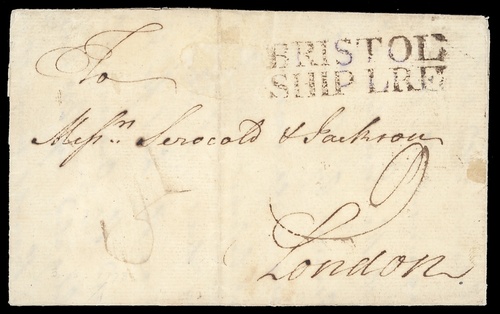 To
BRISTOL
SHIP LRE
Messrs. Serocold & Jackson
London